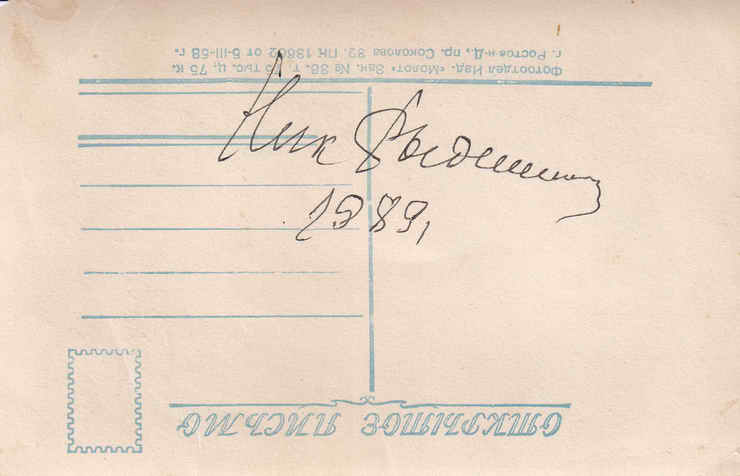 г. Ростов-н-Д., пр. Соколова 32. ПК 13662 от 5-III-58 г.
Фотоотдел Изд. «Молот» Зак. № 38. т. тыс. ц. 75 к.
Ник
1989,
ОТКРЫТОЕ ПИСЬМО